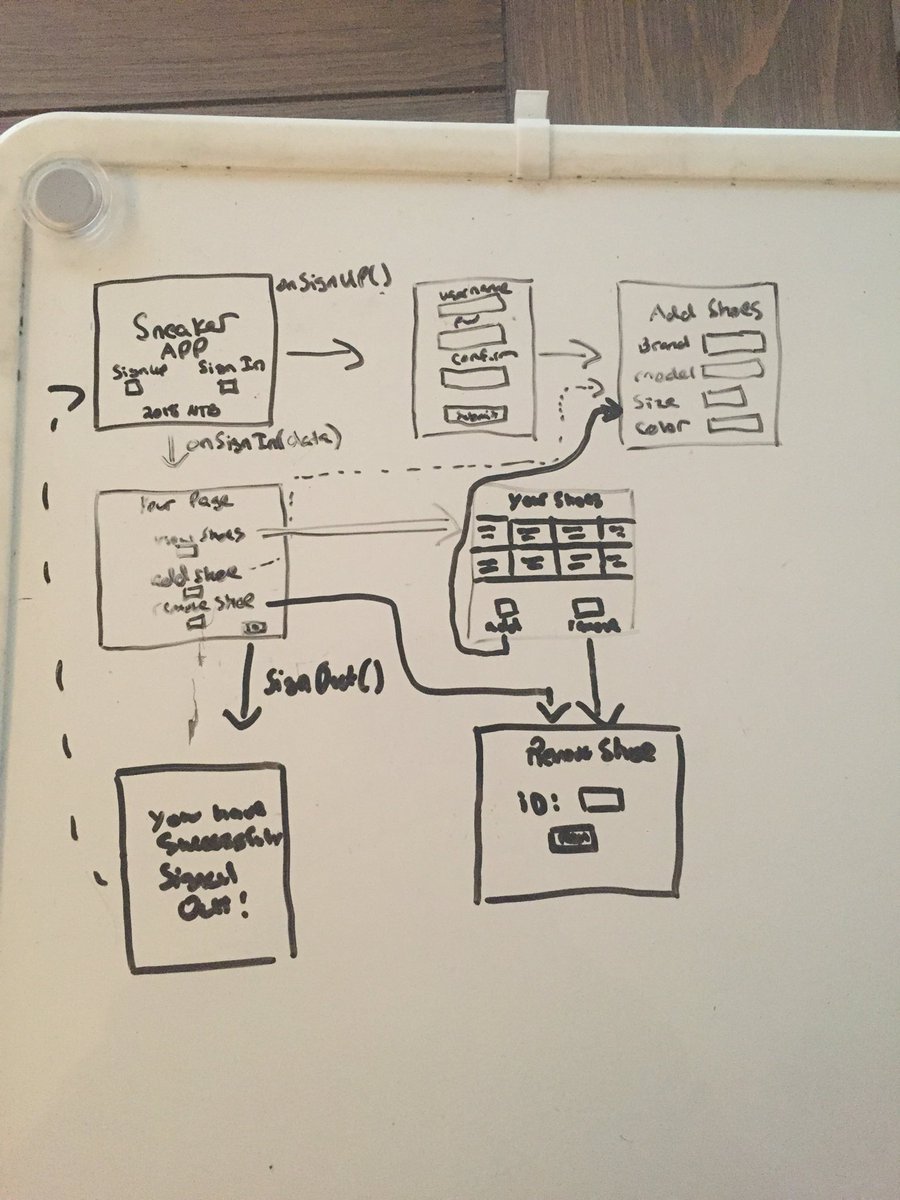 Sneaker
APP
Signup Sign In
2018 NTB
onSignUP()
username
pw
confirm
submit
Add Shoes
Brand
model
Size
Color
onSignIn(data)
Your Page
view Shoes
add shoe
remove shoe
SignOut()
Your Shoes
add remove
You have
Successfully
Signed
Out!
Remove Shoe
ID: